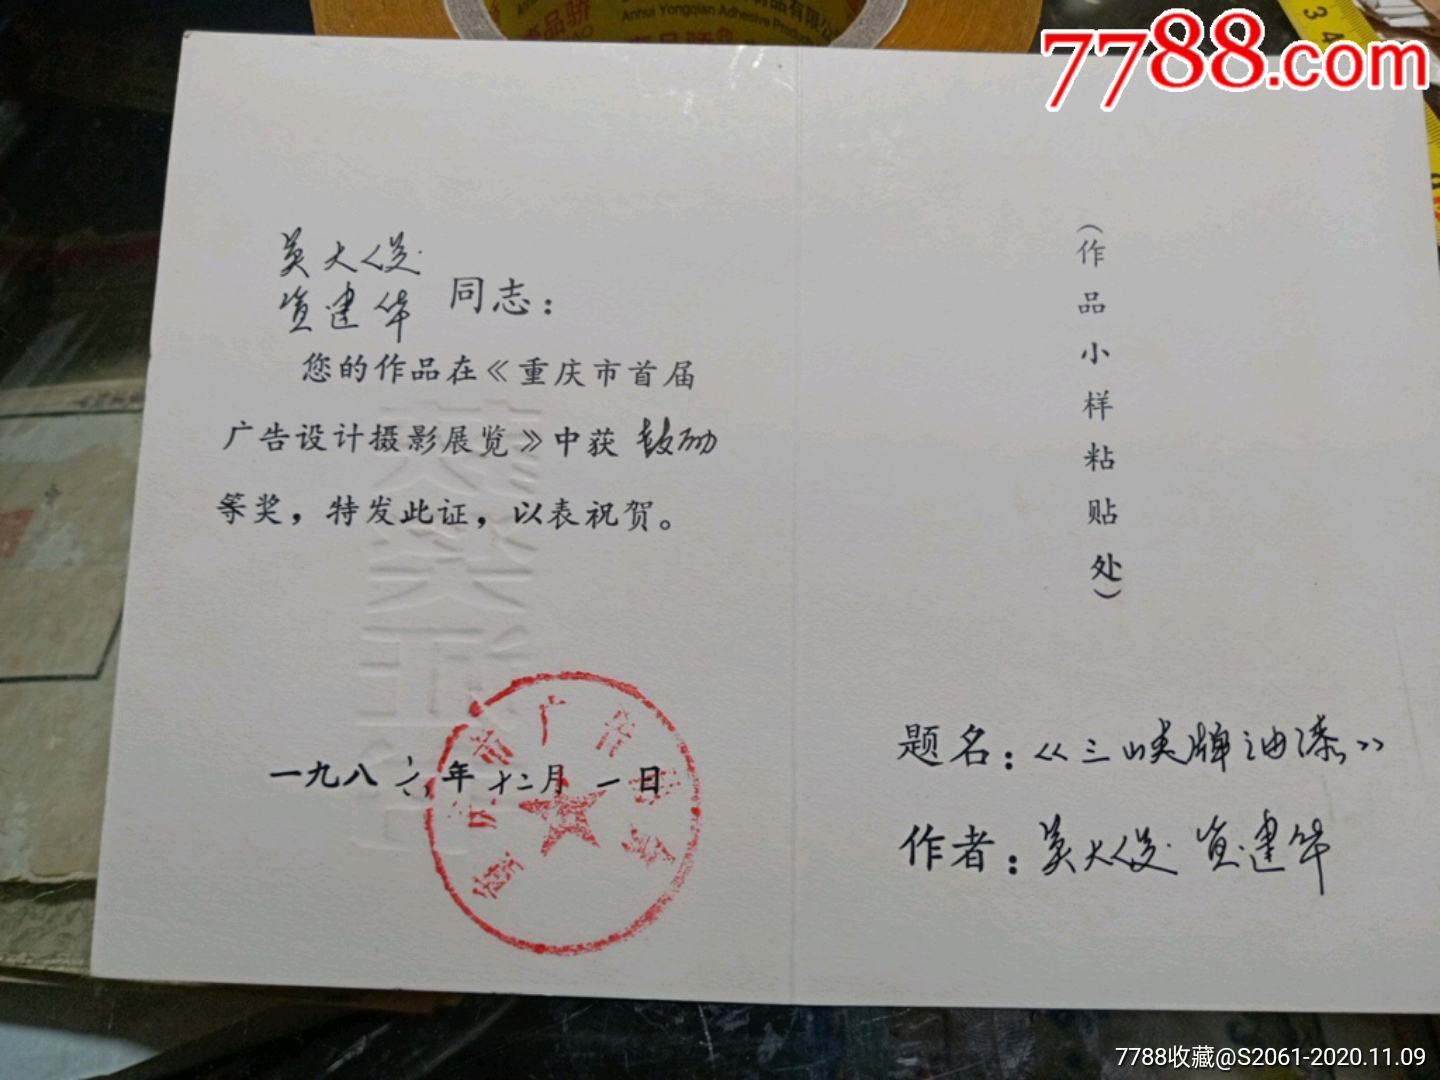 Anhui Yongqian Adhesive Produc
7788.com
吴大俊
资建华 同志：
您的作品在《重庆市首届
广告设计摄影展览》中获 鼓励
等奖，特发此证，以表祝贺。
一九八六年十二月一日
重庆市广告协会
（作品小样粘贴处）
题名：《三峡牌油漆》
作者：吴大俊 资建华
7788收藏@S2061-2020.11.09